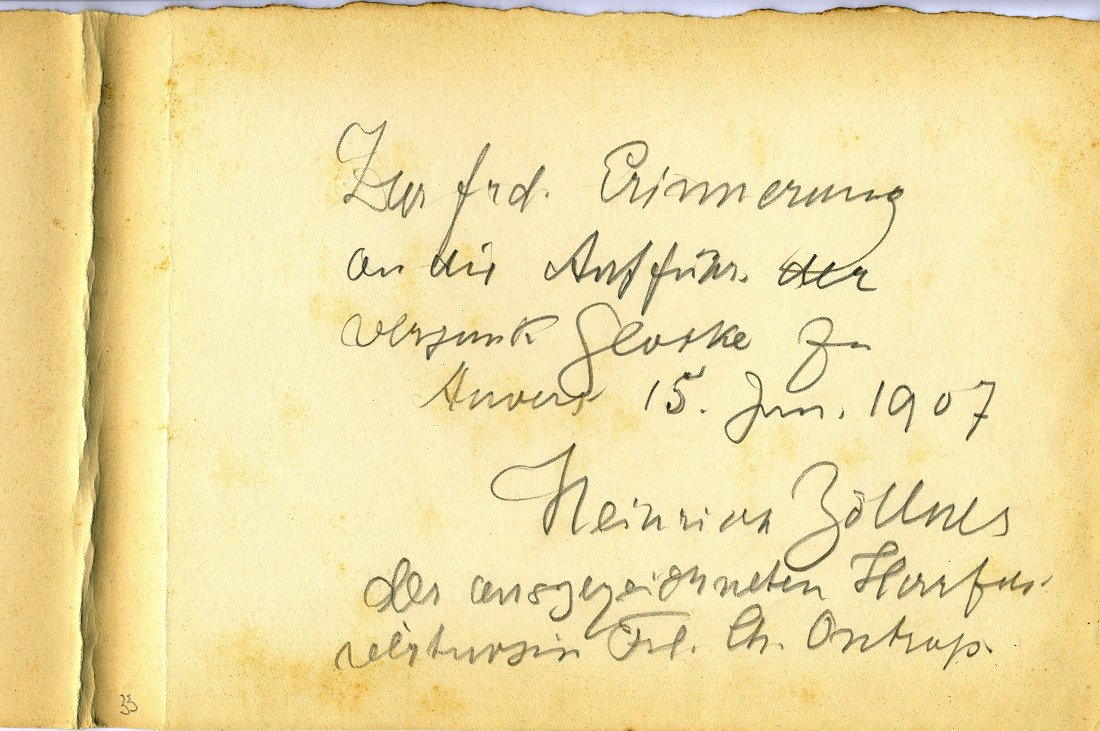 Zur frd. Erinnerung
an die Aufführ. der
versunk Glocke zu
Anvers 15. Jan. 1907
Heinrich Zöllner
der ausgezeichneten Harfen-
virtuosin Frl. Ch. Ontrop.
33